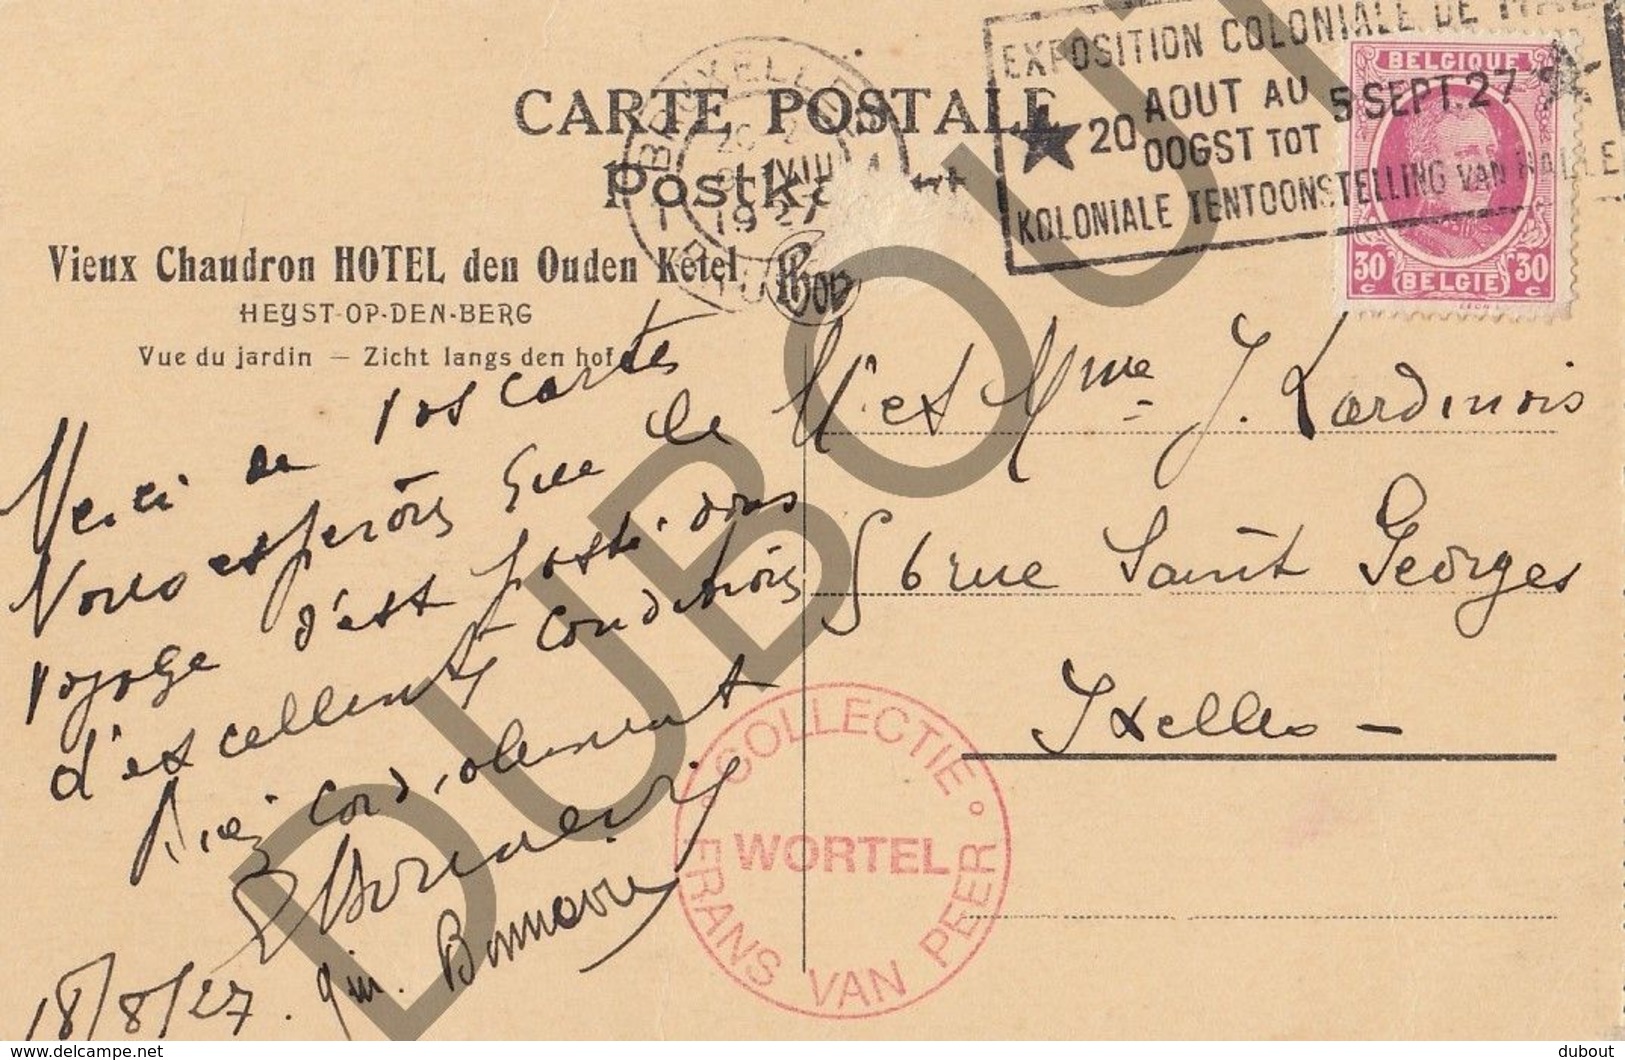 CARTE POSTALE
Postkaart
BRUXELLES
VIII
1927
EXPOSITION COLONIALE DE HAL
20 AOUT AU 5 SEPT. 27
OOGST TOT
KOLONIALE TENTOONSTELLING VAN HALLE
BELGIQUE
30 c 30 c
BELGIE
Vieux Chaudron HOTEL den Ouden Ketel
HEYST-OP-DEN-BERG
Vue du jardin — Zicht langs den hof
Merci de vos cartes
Nous espérons que le
voyage s'est passé dans
d'excellentes conditions
Bien cordialement
18/8/27.
Mr et Mme J. Lardinois
56 rue Saint Georges
Ixelles -
COLLECTIE
WORTEL
FRANS VAN PEER
DUBOUT
dubout